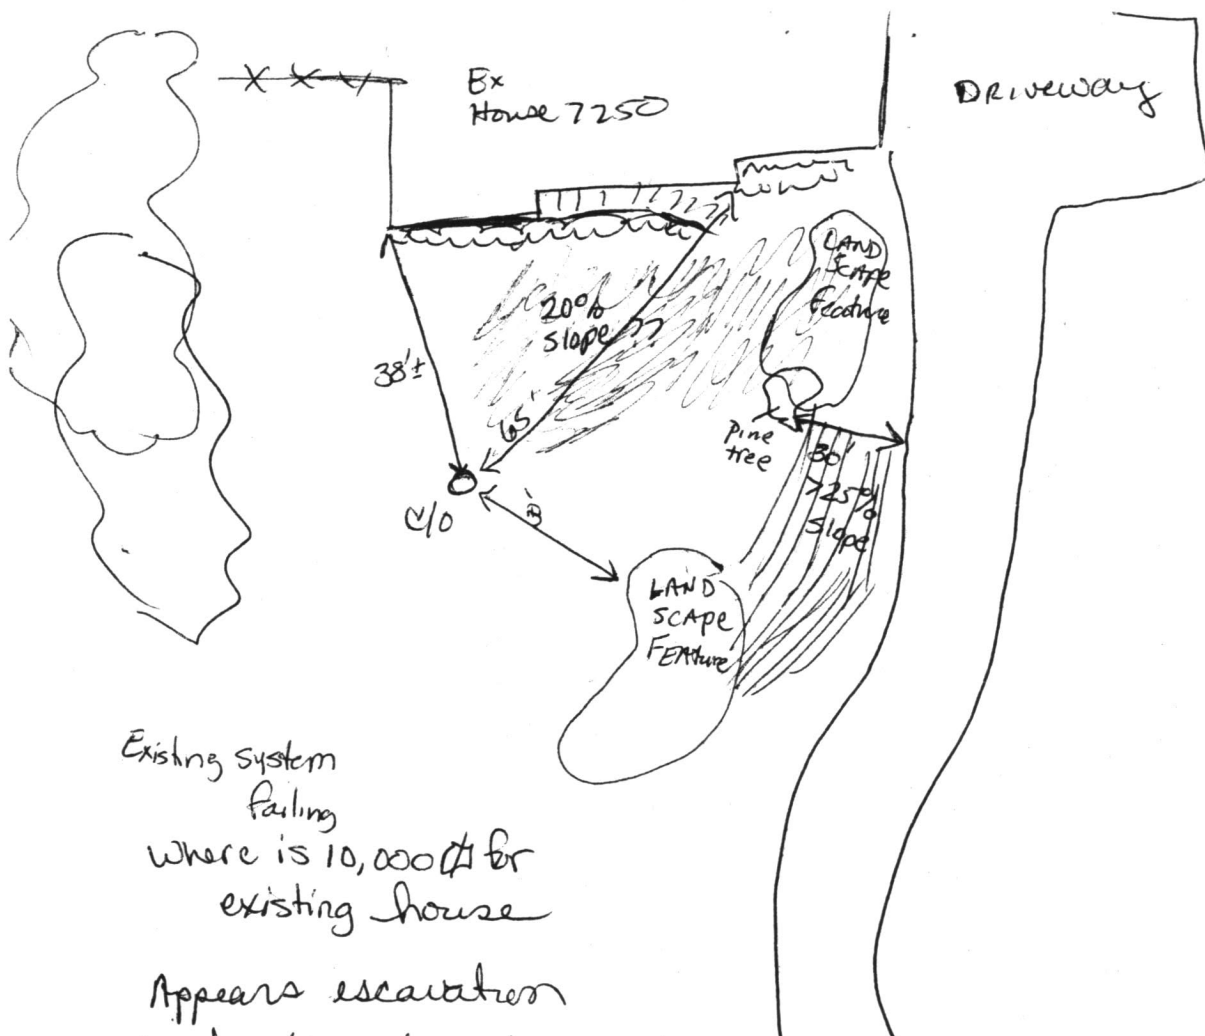 Ex
House 7250
DRIVEWAY
LAND
SCAPE
Feature
20%
slope
??
38'±
65'
Pine
tree
30'
>25%
Slope
C/O
LAND
SCAPE
FEAture
Existing system
failing
where is 10,000 for
existing house
Appears escavation